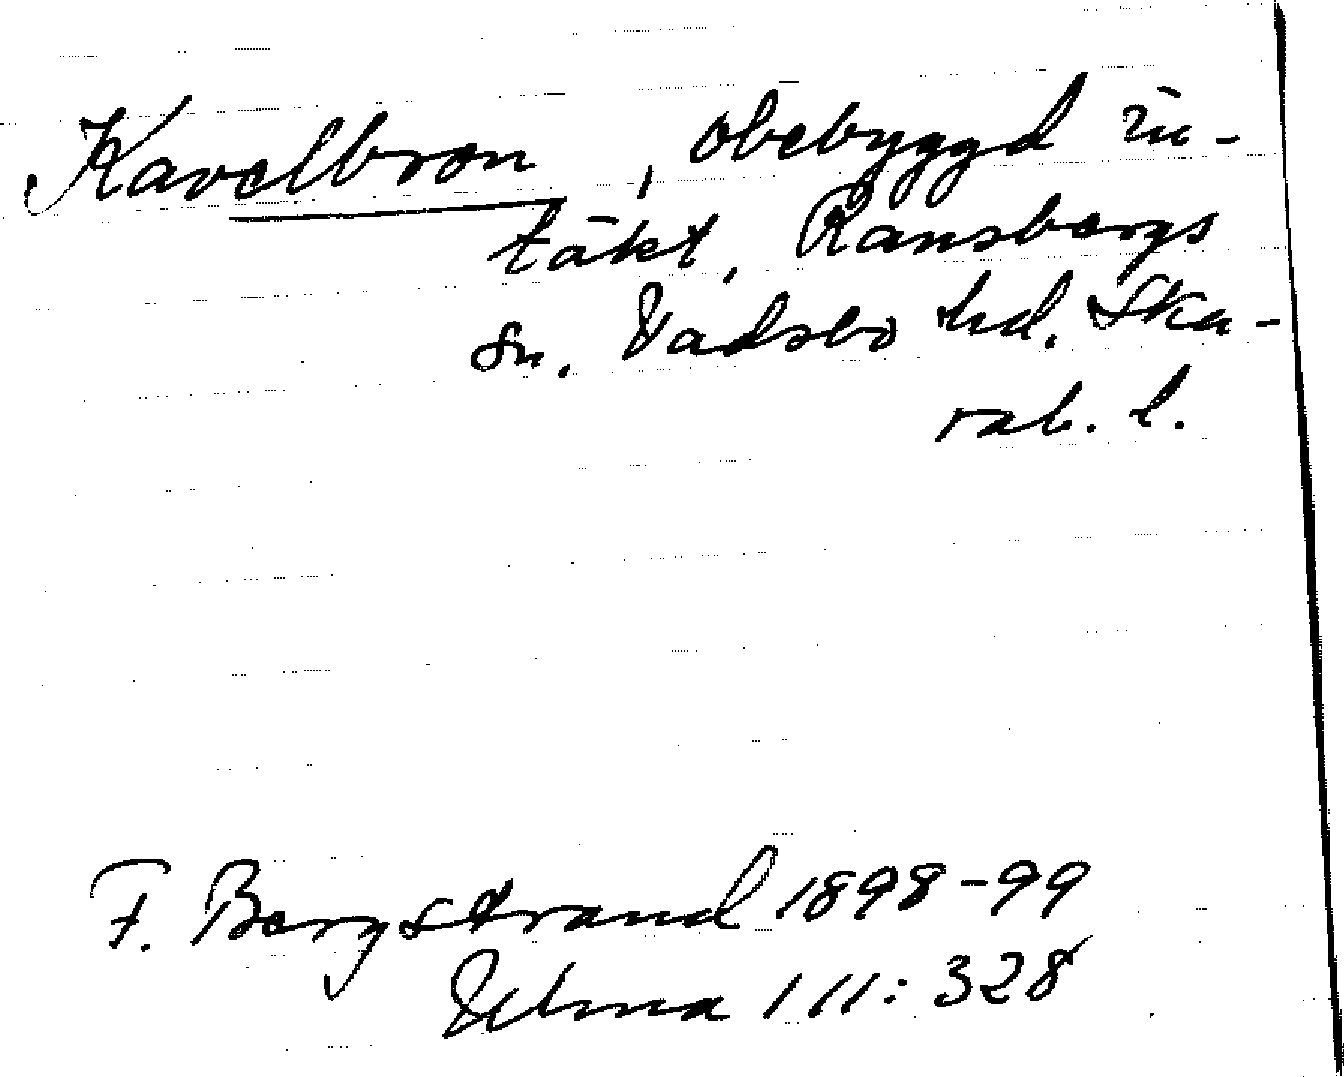 Kavelbron, obebyggd in-
täkt, Ransbergs
sn. Vadsbo hd. Ska-
rab. l.
F. Bergstrand 1898-99
Ulma 111:328